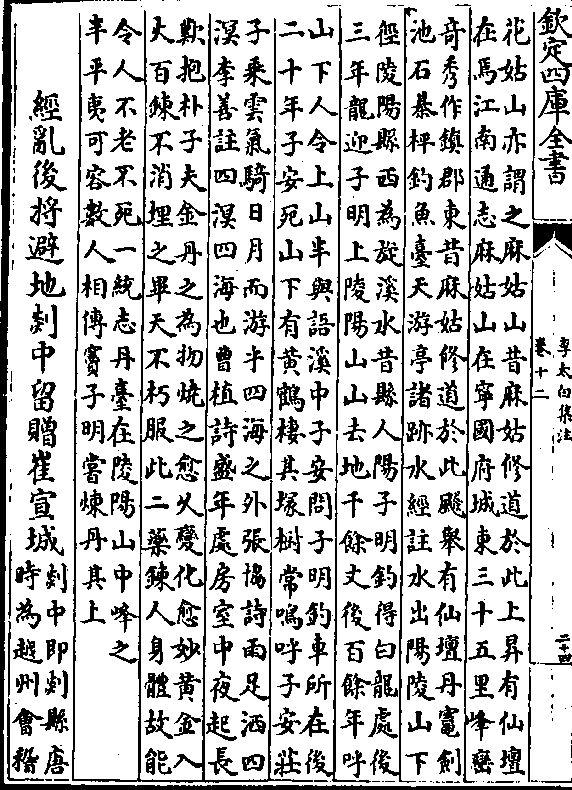 欽定四庫全書
李太白集注
卷十二
二十四
花姑山亦謂之麻姑山昔麻姑修道於此上昇有仙壇
在焉江南通志麻姑山在寧國府城東三十五里峰巒
奇秀作鎮郡東昔麻姑修道於此飈舉有仙壇丹竈劍
池石棊枰釣魚臺天游亭諸跡水經註水出陽陵山下
徑陵陽縣西為旋溪水昔縣人陽子明釣得白龍處後
三年龍迎子明上陵陽山山去地千餘丈後百餘年呼
山下人令上山半與語溪中子安問子明釣車所在後
二十年子安死山下有黃鶴棲其塚樹常鳴呼子安莊
子乘雲氣騎日月而游乎四海之外張協詩雨足洒四
溟李善註四溟四海也曹植詩盛年處房室中夜起長
歎抱朴子夫金丹之為物燒之愈久變化愈妙黃金入
火百鍊不消埋之畢天不朽服此二藥鍊人身體故能
令人不老不死一統志丹臺在陵陽山中峰之
半平夷可容數人相傳竇子明嘗煉丹其上
經亂後將避地剡中留贈崔宣城
剡中即剡縣唐
時為越州會稽